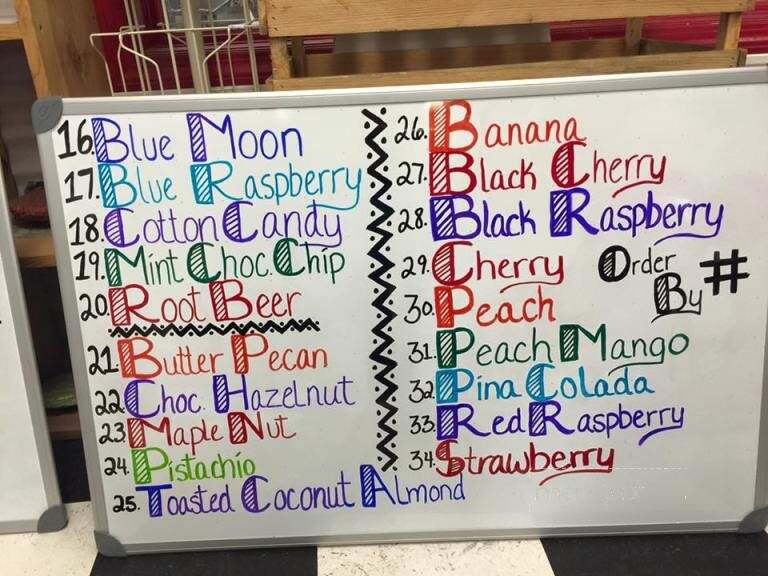 16. Blue Moon
17. Blue Raspberry
18. Cotton Candy
19. Mint Choc. Chip
20. Root Beer
21. Butter Pecan
22. Choc. Hazelnut
23. Maple Nut
24. Pistachio
25. Toasted Coconut Almond
26. Banana
27. Black Cherry
28. Black Raspberry
29. Cherry
30. Peach
31. Peach Mango
32. Pina Colada
33. Red Raspberry
34. Strawberry
Order
By #